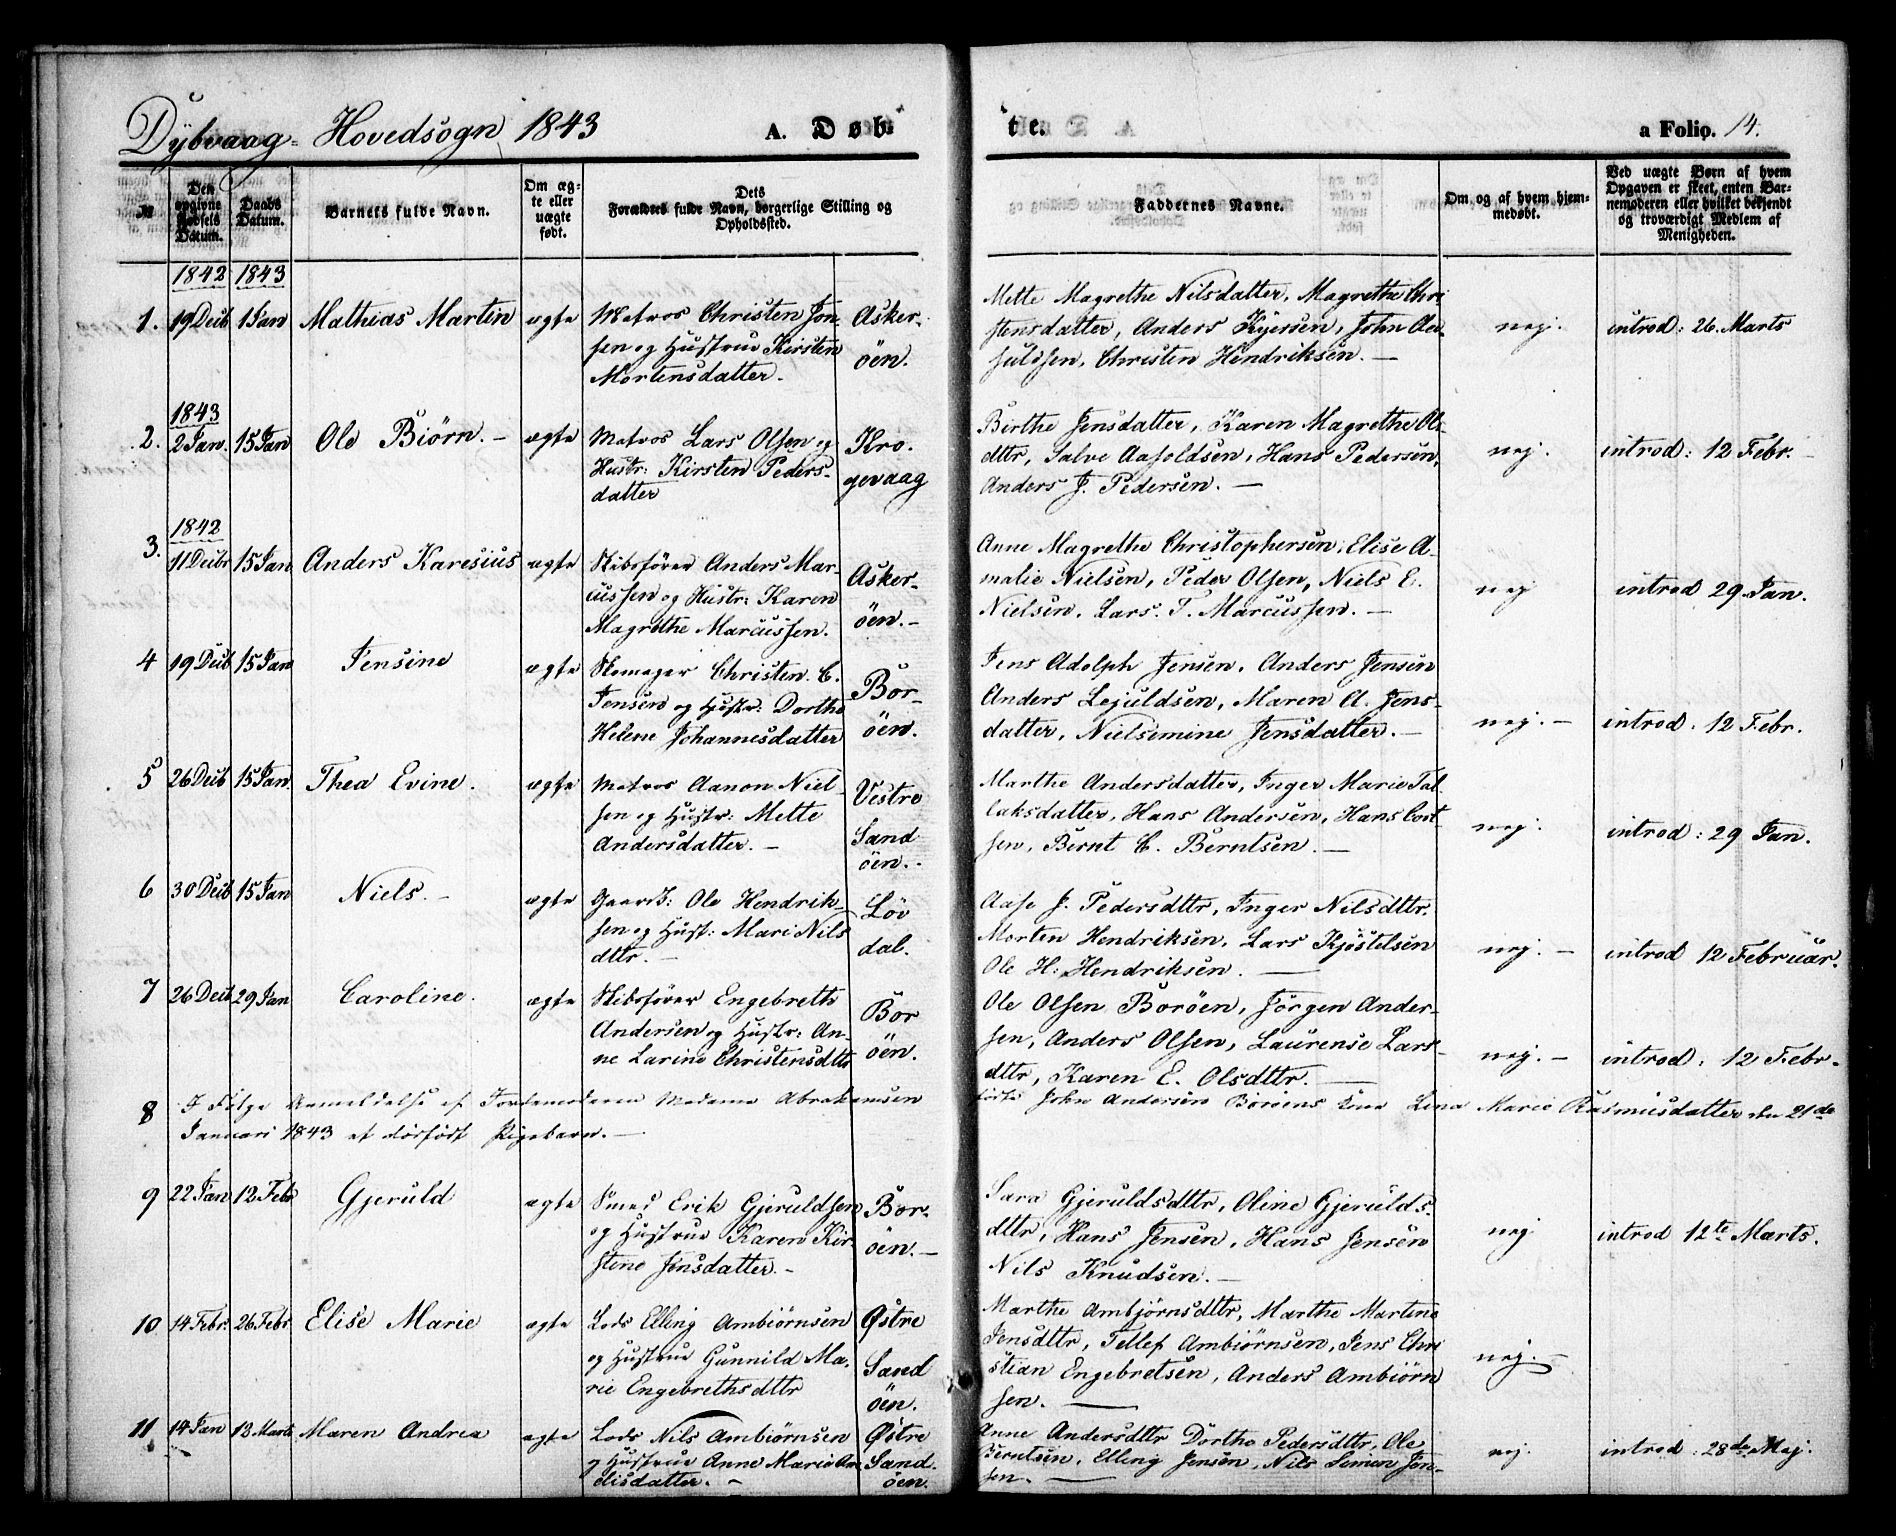 Dybvaag Hovedsogn 1843
A. Døb-
te.
a Folio. 14.
№
Den opgivne Fødsels Datum.
Daabs Datum.
Barnets fulde Navn.
Om æg-
te eller
uægte
født.
Dets
Forældres fulde Navn, borgerlige Stilling og
Opholdssted.
Faddernes Navne.
Om og af hvem hjem-
medøbt.
Ved uægte Børn af hvem
Opgaven er skeet, enten Bar-
nemoderen eller hvilket bekjendt
og troværdigt Medlem af
Menigheden.
1842 1843
1. 19 Decb 1 Jan Mathias Martin ægte
Matros Christen Jen-
sen og Hustrue Kirsten
Mortensdatter.
Asker-
öen.
Mette Magrethe Nilsdatter, Magrethe Chri
stensdatter, Anders Kjersen, John
Christen Hendriksen.
nej.
introd: 26. Marts
1843
2. 2 Jan. 15 Jan Ole Biörn. ægte
Matros Lars Olsen og
Hustr: Kirsten Peders-
datter
Kro-
gevaag
Birthe Jensdatter, Karen Magrethe Ols
dttr, Salve Aasoldsen, Hans Pedersen,
Anders J. Pedersen.
nej.
introd: 12 Febr.
1842
3. 11 Decbr 15 Jan Anders Karesius ægte
Skibsförer Anders Mar-
cussen og Hustr: Karen
Magrethe Marcussen.
Asker-
öen.
Anne Magrethe Christophersen, Elise A-
malie Nielsen, Peder Olsen, Niels E.
Nielsen, Lars. T. Marcussen.
nej
introd 29 Jan.
4 19 Decb 15 Jan Jensine ægte
Skomager Christen. C.
Jensen og Hustr: Dorthe
Helene Johannesdatter
Bor-
öen.
Jens Adolph Jensen, Anders Jensen
Anders Lejuldsen, Maren A. Jens-
datter, Nielsemine Jensdatter.
nej.
introd: 12 Febr.
5 26 Decb 15 Jan Thea Evine. ægte
Matros Aanon Niel-
sen og Hustr: Mette
Andersdatter.
Vestre
Sand
öen.
Marthe Andersdatter, Inger Marie Tal-
laksdatter, Hans Andersen, Hans
sen, Bernt C. Berntsen.
nej.
introd: 29 Jan.
6 30 Decb 15 Jan Niels. ægte
Gaardb: Ole Hendrik-
sen og Hust: Mari Nils
dttr.
Löv
dal.
Aase J. Pedersdttr, Inger Nilsdttr.
Morten Hendriksen, Lars Kjöstelsen
Ole H: Hendriksen.
nej.
introd 12 Februar.
7 26 Decb 29 Jan Caroline. ægte
Skibsförer Engebreth
Andersen og Hustr: An-
ne Larine Christensdttr
Bor
öen.
Ole Olsen Boröen, Jörgen Ander-
sen, Anders Olsen, Laurense Lars
dttr, Karen E. Olsdttr.
nej.
introd: 12 Febr.
8 I Fölge Anmeldelse af Jordemoderen Madame Abrahamsen födte John Andersen Boröens Kone Lena Marie Rasmusdatter den 21de
Januari 1843 et dödfödt Pigebarn.
9 22 Jan 12 Febr Gjeruld ægte
Smed Erik Gjeruldsen
og Hustrue Karen Kir-
stine Jensdatter.
Bor-
öen.
Sara Gjeruldsdttr, Oline Gjerulds-
dttr, Hans Jensen, Hans Jensen
Nils Knudsen.
nej
introd 12te Marts.
10 14 Febr. 26 Febr. Elise Marie ægte
Lods Elling Ambiörnsen
og Hustrue Gunnild Ma-
rie Engebrethsdttr
Östre
Sand
öen.
Marthe Ambjörnsdttr, Marthe Martine
Jensdttr, Tellef Ambiörnsen, Jens Chri
stian Engebretsen, Anders Ambiörn
sen.
nej.
11 14 Jan 13 Marts Maren Andrea ægte
Lods Nils Ambiörnsen
og Hustrue Anne Marie An
disdatter.
Östre
Sand.
öen.
Anne Andersdttr Dorthe Pedersdttr, Ole
Berntsen, Elling Jensen, Nils Simen Jen-
sen.
nej.
introd: 28de Maj.